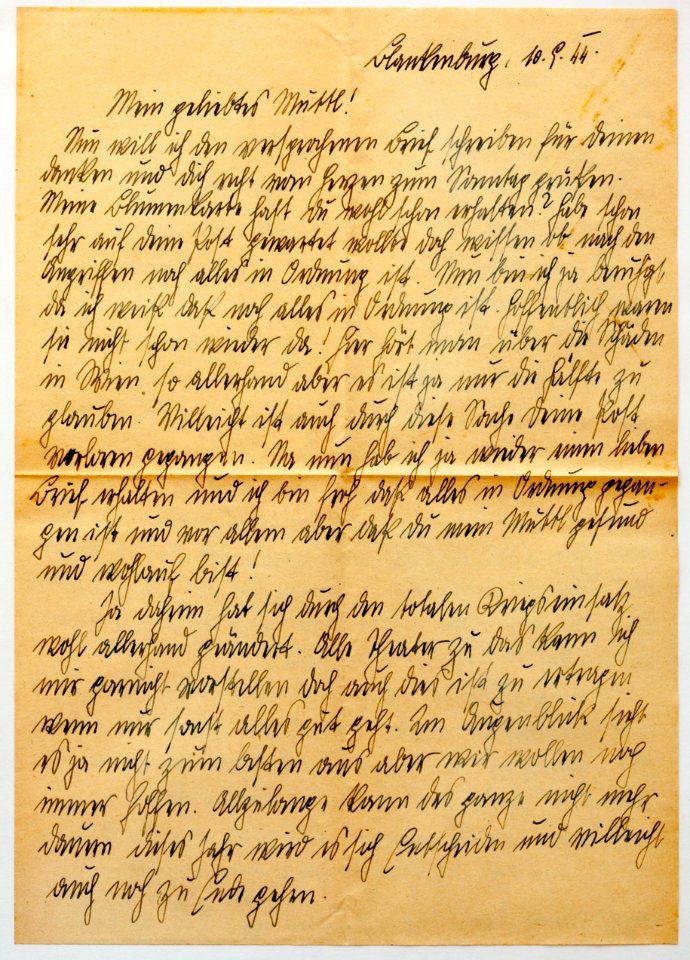 Blankenburg, 10.9.44.
Mein geliebtes Muttl!
Nun will ich den versprochenen Brief schreiben für deinen
danken und dich recht vom Herzen zum Sonntag grüßen.
Meine Blumenkarte hast du wohl schon erhalten? Habe schon
sehr auf deine Post gewartet wollte doch wissen ob nach den
Angriffen noch alles in Ordnung ist. Nun bin ich ja beruhigt
da ich weiß daß noch alles in Ordnung ist. Hoffentlich waren
sie nicht schon wieder da! Hier hört man über die Schäden
in Wien so allerhand aber es ist ja nur die Hälfte zu
glauben. Villeicht ist auch durch diese Sache deine Post
verloren gegangen. Na nun hab ich ja wieder einen lieben
Brief erhalten und ich bin froh daß alles in Ordnung gegan-
gen ist und vor allem aber daß du mein Muttl gesund
und wohlauf bist!
Ja daheim hat sich durch den totalen Kriegseinsatz
wohl allerhand geändert. Alle Theater zu das kann ich
mir garnicht vorstellen doch auch dies ist zu ertragen
wenn nur sonst alles gut geht. Im Augenblick sieht
es ja nicht zum besten aus aber wir wollen noch
immer hoffen. Allzulange kann des ganze nicht mehr
dauern dieses Jahr wird es sich Entscheiden und villeicht
auch noch zu Ende gehen.